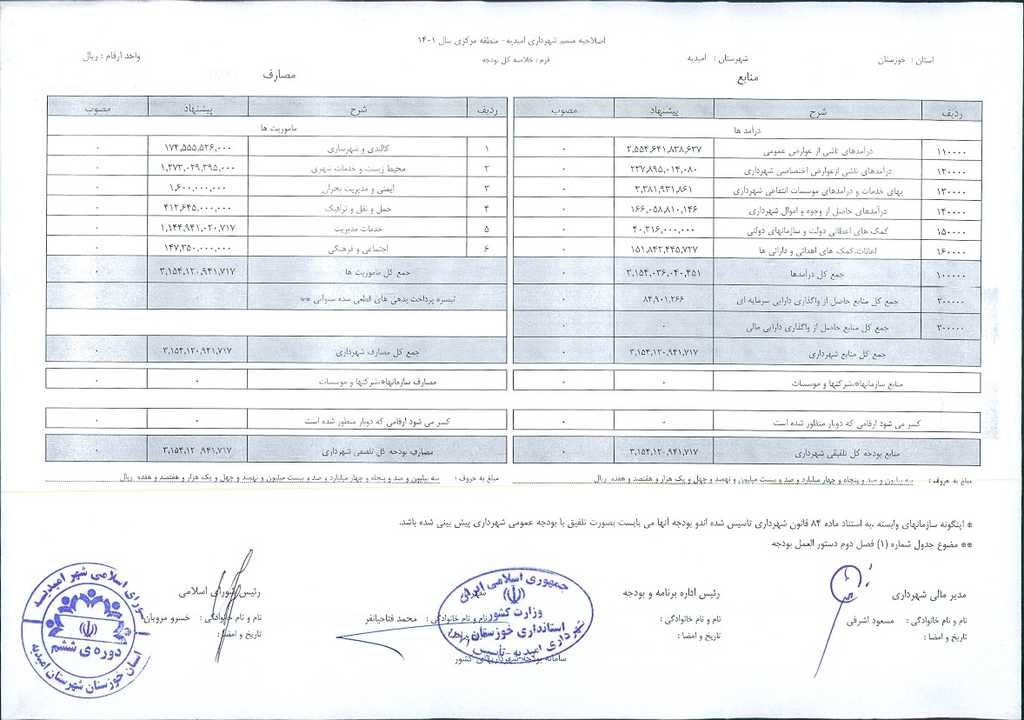 اصلاحیه متمم شهرداری امیدیه- منطقه مرکزی سال ۱۴۰۱
استان : خوزستان
شهرستان : امیدیه
فرم : خلاصه کل بودجه
واحد ارقام : ریال
منابع
ردیف شرح پیشنهاد مصوب
درآمد ها
۱۱۰۰۰۰ درآمدهای ناشی از عوارض عمومی ۲,۵۵۴,۶۴۱,۸۳۸,۶۳۷ ۰
۱۲۰۰۰۰ درآمدهای ناشی ازعوارض اختصاصی شهرداری ۲۳۷,۸۹۵,۰۱۴,۰۸۰ ۰
۱۳۰۰۰۰ بهای خدمات و درآمدهای موسسات انتفاعی شهرداری ۳,۳۸۱,۹۳۱,۸۶۱ ۰
۱۴۰۰۰۰ درآمدهای حاصل از وجوه و اموال شهرداری ۱۶۶,۰۵۸,۸۱۰,۱۴۶ ۰
۱۵۰۰۰۰ کمک های اعطائی دولت و سازمانهای دولتی ۴۰,۲۱۶,۰۰۰,۰۰۰ ۰
۱۶۰۰۰۰ اعانات،کمک های اهدائی و دارائی ها ۱۵۱,۸۴۲,۴۴۵,۷۲۷ ۰
۱۰۰۰۰۰ جمع کل درآمدها ۳,۱۵۴,۰۳۶,۰۴۰,۴۵۱ ۰
۲۰۰۰۰۰ جمع کل منابع حاصل از واگذاری دارایی سرمایه ای ۸۴,۹۰۱,۲۶۶ ۰
۳۰۰۰۰۰ جمع کل منابع حاصل از واگذاری دارایی مالی ۰ ۰
جمع کل منابع شهرداری ۳,۱۵۴,۱۲۰,۹۴۱,۷۱۷ ۰
منابع سازمانها*،شرکتها و موسسات ۰ ۰
کسر می شود ارقامی که دوبار منظور شده است ۰ ۰
منابع بودجه کل تلفیقی شهرداری ۳,۱۵۴,۱۲۰,۹۴۱,۷۱۷ ۰
مبلغ به حروف : سه بیلیون و صد و پنجاه و چهار میلیارد و صد و بیست میلیون و نهصد و چهل و یک هزار و هفتصد و هفده ریال
مصارف
ردیف شرح پیشنهاد مصوب
ماموریت ها
۱ کالبدی و شهرسازی ۱۷۴,۵۵۵,۵۲۶,۰۰۰ ۰
۲ محیط زیست و خدمات شهری ۱,۲۷۳,۰۲۹,۳۹۵,۰۰۰ ۰
۳ ایمنی و مدیریت بحران ۱,۶۰۰,۰۰۰,۰۰۰ ۰
۴ حمل و نقل و ترافیک ۴۱۲,۶۴۵,۰۰۰,۰۰۰ ۰
۵ خدمات مدیریت ۱,۱۴۴,۹۴۱,۰۲۰,۷۱۷ ۰
۶ اجتماعی و فرهنگی ۱۴۷,۳۵۰,۰۰۰,۰۰۰ ۰
جمع کل ماموریت ها ۳,۱۵۴,۱۲۰,۹۴۱,۷۱۷ ۰
تبصره پرداخت بدهی های قطعی شده سنواتی ** ۰
جمع کل مصارف شهرداری ۳,۱۵۴,۱۲۰,۹۴۱,۷۱۷ ۰
مصارف سازمانها*،شرکتها و موسسات ۰ ۰
کسر می شود ارقامی که دوبار منظور شده است ۰ ۰
مصارف بودجه کل تلفیقی شهرداری ۳,۱۵۴,۱۲۰,۹۴۱,۷۱۷ ۰
مبلغ به حروف : سه بیلیون و صد و پنجاه و چهار میلیارد و صد و بیست میلیون و نهصد و چهل و یک هزار و هفتصد و هفده ریال
* اینگونه سازمانهای وابسته ،به استناد ماده ۸۴ قانون شهرداری تاسیس شده اندو بودجه آنها می بایست بصورت تلفیق با بودجه عمومی شهرداری پیش بینی شده باشد.
** موضوع جدول شماره (۱) فصل دوم دستور العمل بودجه
مدیر مالی شهرداری
نام و نام خانوادگی : مسعود اشرفی
تاریخ و امضا :
رئیس اداره برنامه و بودجه
نام و نام خانوادگی :
تاریخ و امضا :
نام و نام خانوادگی : محمد فتاحیانفر
سامانه بودجه شهرداریهای کشور
جمهوری اسلامی ایران
وزارت کشور
استانداری خوزستان
شهرداری امیدیه-تأسیس
رئیس شورای اسلامی
نام و نام خانوادگی : خسرو مرویان
تاریخ و امضا :
شورای اسلامی شهر امیدیه
دوره ی ششم
استان خوزستان شهرستان امیدیه